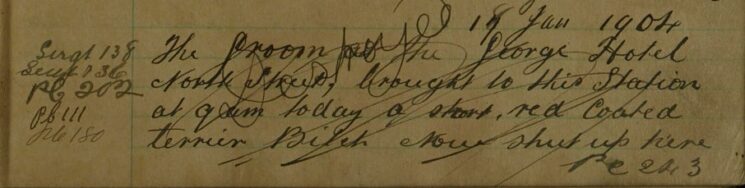 18 Jan 1904
Sergt 138
Sergt 136
PC 202
PC 111
PC 180
The Groom at The George Hotel
North Street, brought to this Station
at 9am today a short, red Coated
terrier Bitch Now shut up here
PC 243